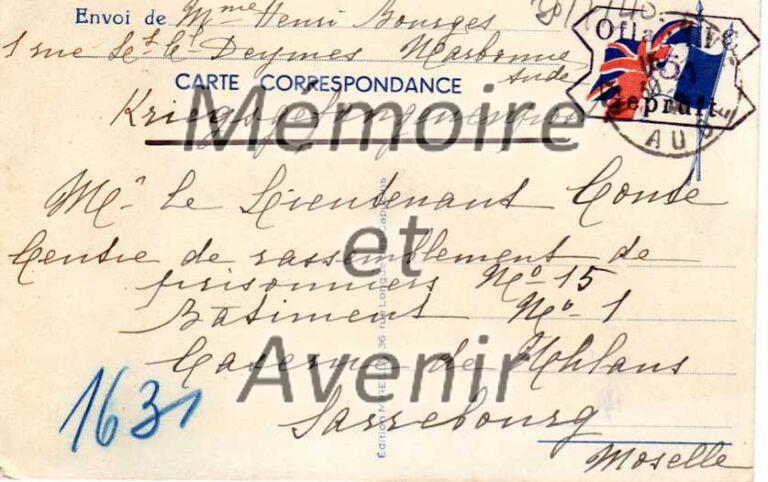 Envoi de Mme Henri Bourges
1 rue Lt Deymes Narbonne
Aude
CARTE CORRESPONDANCE
Kriegsgefangenenpost
Oflag
Geprüft
AU
Mr le Lieutenant Conse
Centre de rassemblement de
prisonniers No 15
Bâtiment No 1
Caserne de Uhlans
Sarrebourg
Moselle
1631
Mémoire
et
Avenir